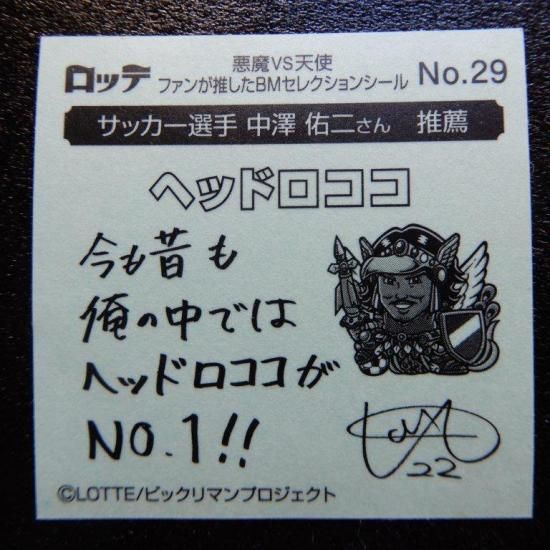 ロッテ
悪魔VS天使
ファンが推したBMセレクションシール
No.29
サッカー選手 中澤 佑二さん 推薦
ヘッドロココ
今も昔も
俺の中では
ヘッドロココが
NO.1!!
22
©LOTTE/ビックリマンプロジェクト